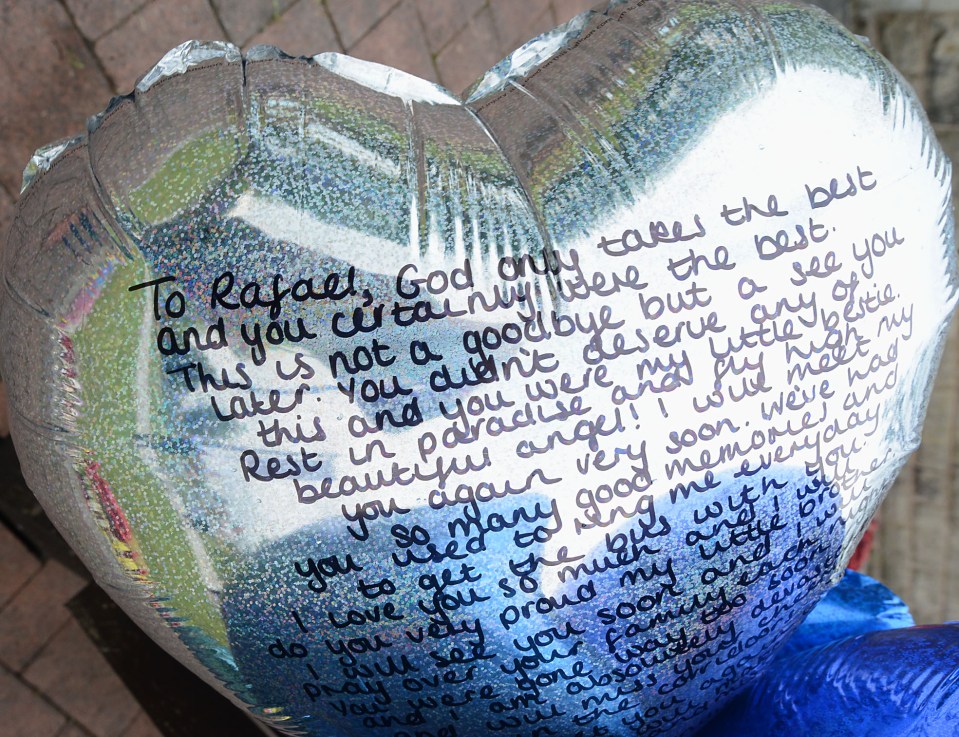 To Rafael, God only takes the best
and you certainly were the best.
This is not a goodbye but a see you
later. You didn't deserve any of
this and you were my little bestie.
Rest in paradise and fly high my
beautiful angel! I will meet
you again very soon. We've had
so many good memories and
you used to ring me everyday
to get the bus with you.
I love you so much and I will
do you very proud my little brother.
I will see you soon and I will
pray over your family each
You were gone way too soon
and I am absolutely
and will miss you
in the corridors
you